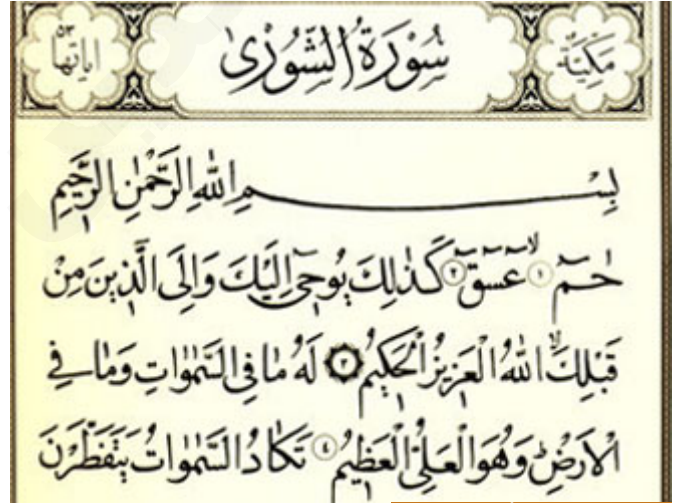 مَكِّيَّة سُورَةُ الشُّورٰى اياتها ٥٣
بِسْمِ اللّٰهِ الرَّحْمٰنِ الرَّحِيمِ
حٰمٓ ١ عٓسٓقٓ ٢ كَذٰلِكَ يُوحٖٓي اِلَيْكَ وَاِلَى الَّذٖينَ مِنْ
قَبْلِكَۙ اللّٰهُ الْعَزٖيزُ الْحَكٖيمُ ٣ لَهُ مَا فِي السَّمٰوَاتِ وَمَا فِي
الْاَرْضِؕ وَهُوَ الْعَلِيُّ الْعَظٖيمُ ٤ تَكَادُ السَّمٰوَاتُ يَتَفَطَّرْنَ